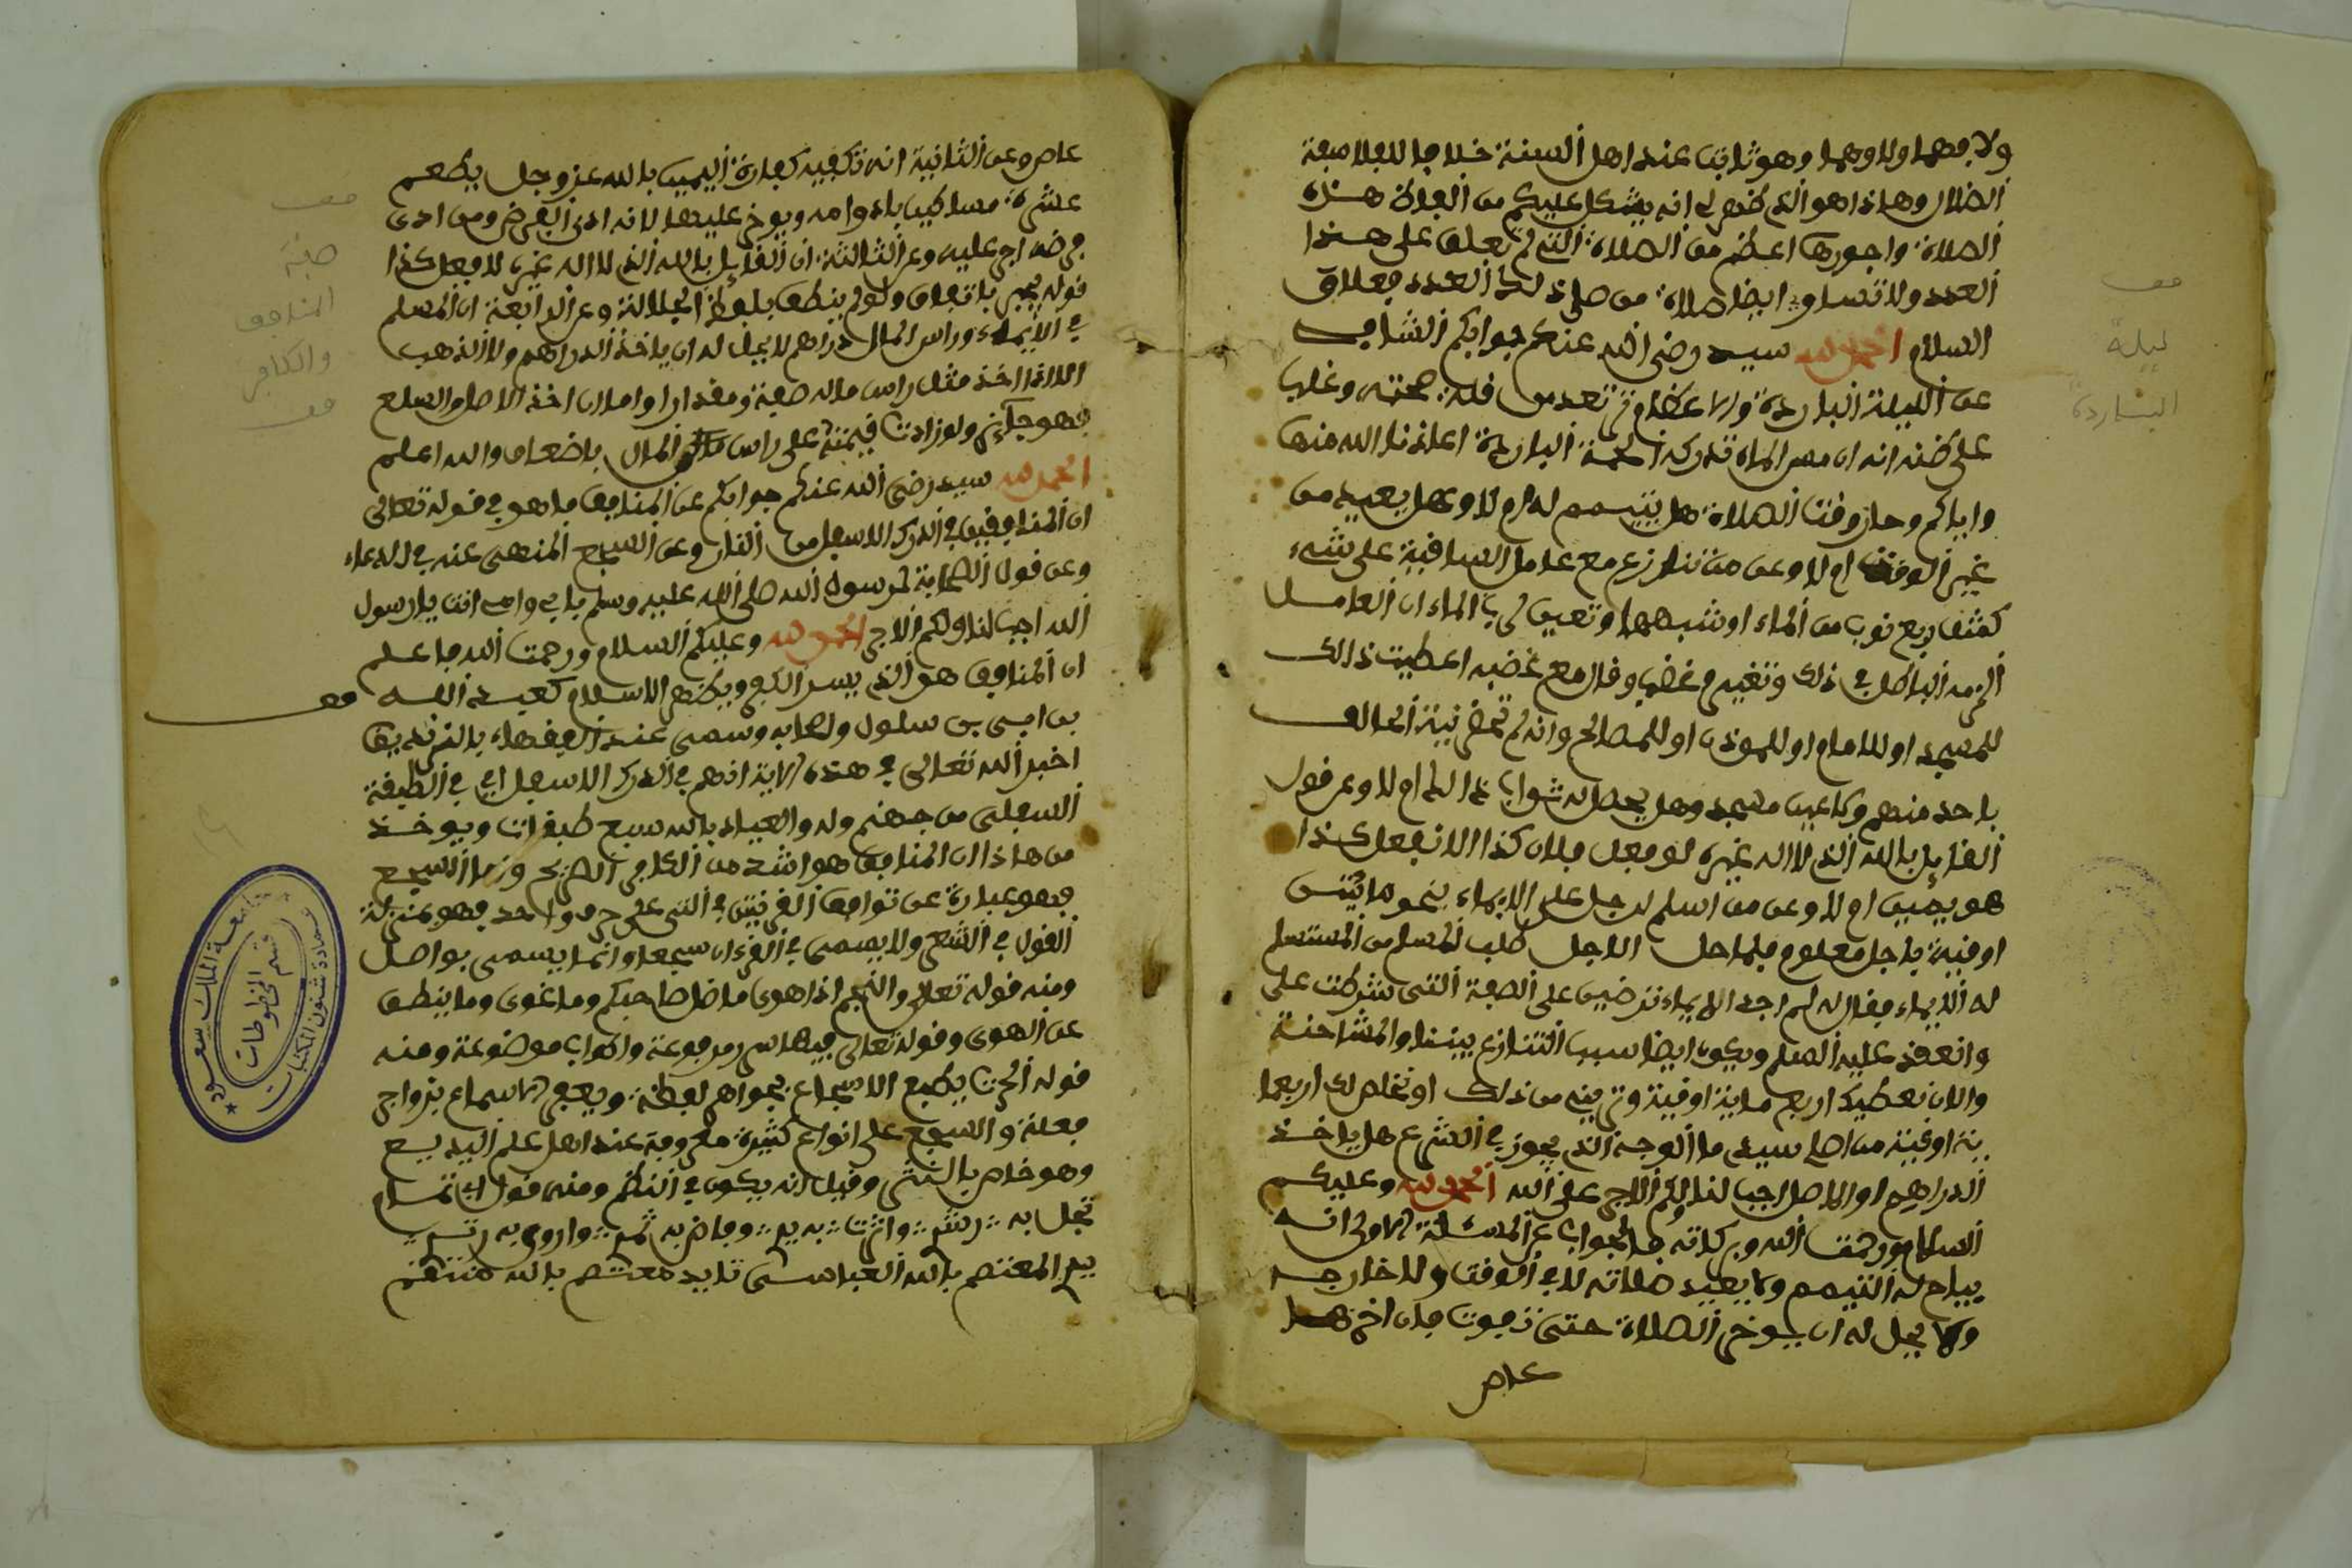 ولا فهما ولا وهما وهو ثابت عند اهل السنة خلافا للفلاسفة
الضلال وهاذا هو الذي ظهر لي انه يشكل عليكم من الفدك هذه
الصلاة واجورها اعظم من الصلاة التي لم تعلق على هذا
العدد ولا تساوي ايضا صلاة من صلى ذلك العدد فعلاق
السلام الحمد لله سيد رضي الله عنكم جوابكم الشافي
عن الليلة الباردة والاعظام تعد من قلة صحته وغلب
على ظنه انه ان مس الماء تدركه الحمة الباردة اعاذنا الله منها
واياكم وحان وقت الصلاة هل يتيمم لها ام لا وهل يعيد من
غير الوقت ام لا وعن من تنازع مع عامل الساقية على شيء
كمثف ربع نوب من الماء او شبهها وتعين لرب الماء ان العامل
الزمه الباطل في ذلك وتغير وغضب وقال مع غضبه اعطيت ذالك
للمسجد او للامام او للموذن او للمصالح وانه لم تحضر نية الحالف
باحد منهم ولا عين مسجد وهل يحصل له ثواب ذالك ام لا وعن قول
القايل بالله الذي لا اله غيره لو فعل فلان كذا الا نفعل كذا
هو يمين ام لا وعن من اسلم لرجل على الايماء بنحو مايتين
اوقية باجل معلوم فلما حل الاجل طلب المسلم من المستسلم
له الايماء فقال له لم اجد الايماء ترضين على الصفة التي شرطت على
وانعقد عليه السلم ويكون ايضا سبب التنازع بيننا والمشاحنة
والان نعطيك اربع ماية اوقية وتريني من ذلك او نخلص لك اربعما
ية اوقية من اصل سيدي ما الوجه الذي يجوز في الشرع هل ياخذ
الدراهم او الاصل اجب لنا ولكم الاجر على الله الحمد لله وعليكم
السلام ورحمت الله وبركاته فالجواب عن المسئلة الاولى انه
يباح له التيمم ولا يعيد صلاته لا في الوقت ولا خارجه
ولا يحل له ان يوخر الصلاة حتى تفوت فان اخرها
عاص
قف
ليلة
الباردة
عاص وعن الثانية انه تكفيه كفارة اليمين بالله عز وجل يطعم
عشرة مساكين بادوامه ويوخر عليها لانه ادى الفرض ومن ادى
فرضه اجر عليه وعن الثالثة ان القايل بالله الذي لا اله غيره لافعل كذا
قوله يمين باتفاق ولو لم ينطق بلفظ الجلالة وعن الرابعة ان المسلم
في الايماء وراس المال دراهم لا يحل له ان ياخذ الدراهم ولا الذهب
الا اذا اخذ مثل راس ماله صفة ومقدارا واما ان اخذ الاصل والسلع
فهو جايز ولو زادت قيمته على راس المال باضعاف والله اعلم
الحمد لله سيد رضي الله عنكم جوابكم عن المنافق ما هو في قوله تعالى
ان المنافقين في الدرك الاسفل من النار وعن السجع المنهى عنه في الدعاء
وعن قول الصحابة لرسول الله صلى الله عليه وسلم بابي وامي انت يا رسول
الله اجب لنا ولكم الاجر الحمد لله وعليكم السلام ورحمت الله فاعلم
ان المنافق هو الذي يسر الكفر ويظهر الاسلام كعبد الله
بن ابي بن سلول واصحابه وسمى عند الفقهاء بالزنديق
اخبر الله تعالى في هذه الاية انهم في الدرك الاسفل اي في الطبقة
السفلى من جهنم وله والعياذ بالله سبع طبقات ويوخذ
من هاذا ان المنافق هو اشد من الكافر الصريح واما السجع
فهو عبارة عن توافق القرنيتين في النثر على حرف واحد فهو بمنزلة
القول في الشعر ولا يسمى في القرءان سجعا وانما يسمى بواصل
ومنه قوله تعالى والنجم اذا هوى ما ضل صاحبكم وما غوى وما ينطق
عن الهوى وقوله تعالى فيها سرر مرفوعة واكواب موضوعة ومنه
قوله الحرث يطبع الاسجاع بجواهر لفظه ويقرع الاسماع بزواجر
وعظه والسجع على انواع كثيرة معروفة عند اهل علم البديع
وهو خاص بالنثر وقيل انه يكون في النظم ومنه قول ابي تمام
تجلى به رشد واثرت به يد وفاض به ثمد واروى به زند
يد المعتصم بالله العباسي تدبير معتصم بالله منتقم
قف
صفة
المنافق
والكافر
قف
قف
جامعة الملك سعود
عمادة شئون المكتبات
قسم المخطوطات